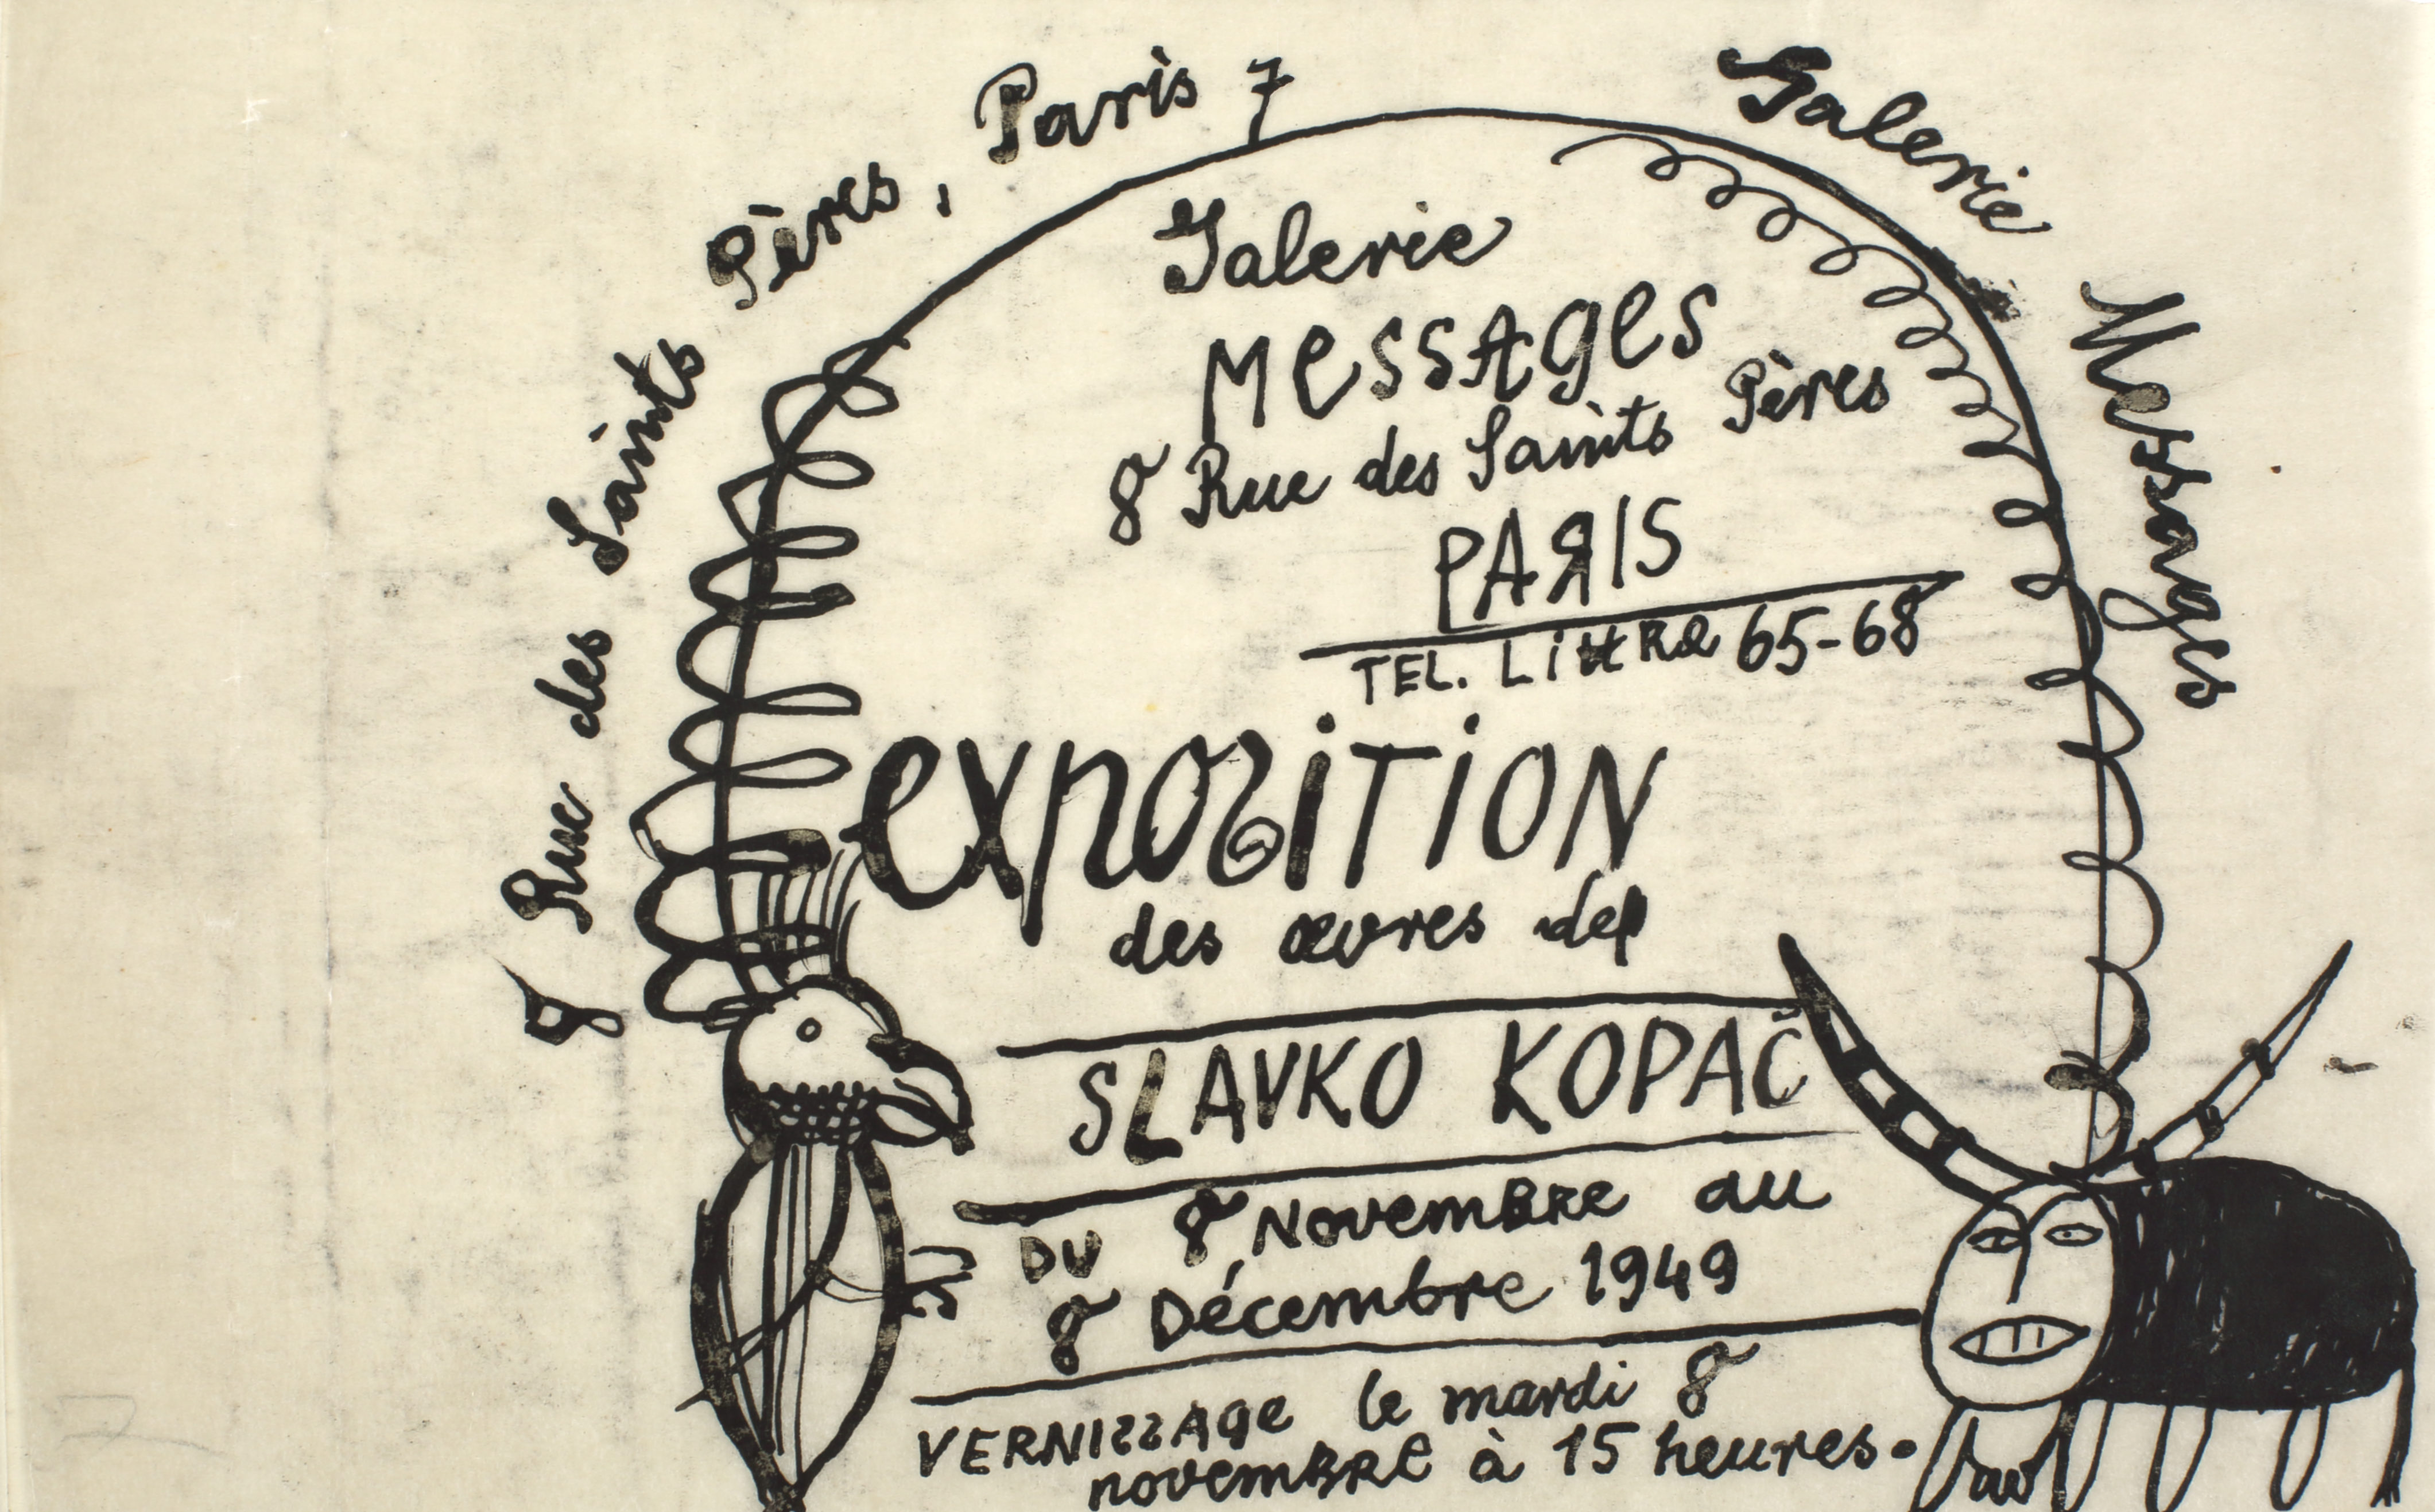 8 Rue des Saints Pères, Paris 7
Galerie Messages
Galerie
MessAges
8 Rue des Saints Pères
PARIS
TEL. LittRe 65-68
exposiTiON
des œuvres de
SLAVKO KOPAČ
DU 8 NovemBRe au
8 Décembre 1949
VERNISSAge le mardi 8
novemBRe à 15 heures.